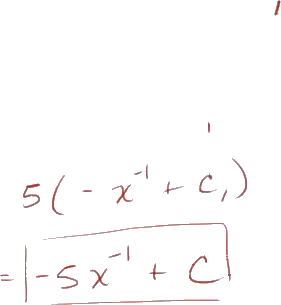 5(-x⁻¹ + C₁)
= -5x⁻¹ + C